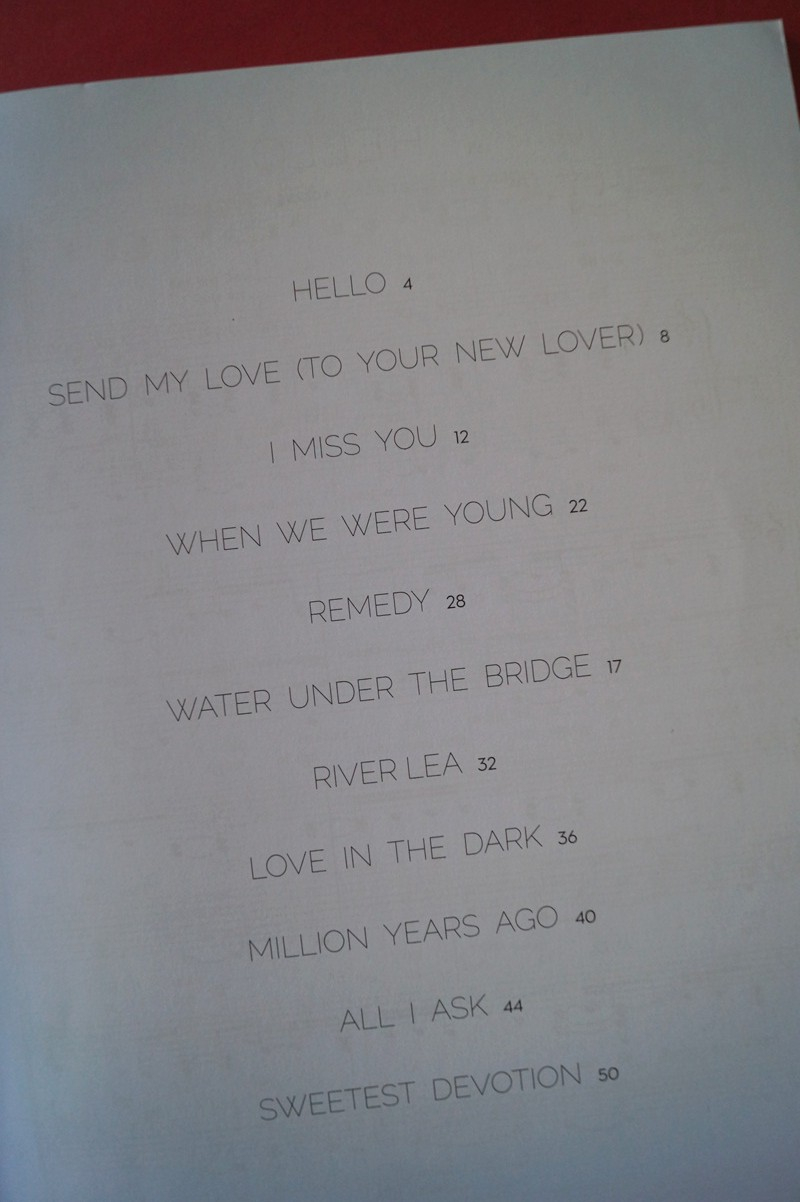 HELLO 4
SEND MY LOVE (TO YOUR NEW LOVER) 8
I MISS YOU 12
WHEN WE WERE YOUNG 22
REMEDY 28
WATER UNDER THE BRIDGE 17
RIVER LEA 32
LOVE IN THE DARK 36
MILLION YEARS AGO 40
ALL I ASK 44
SWEETEST DEVOTION 50